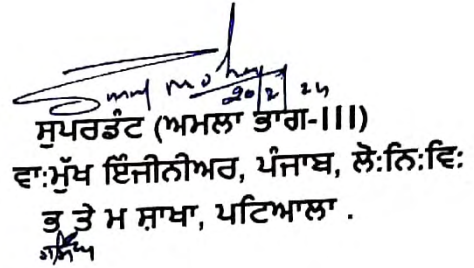 20/2/24
ਸੁਪਰਡੰਟ (ਅਮਲਾ ਭਾਗ-III)
ਵਾ:ਮੁੱਖ ਇੰਜੀਨੀਅਰ, ਪੰਜਾਬ, ਲੋ:ਨਿ:ਵਿ:
ਭ ਤੇ ਮ ਸ਼ਾਖਾ, ਪਟਿਆਲਾ .